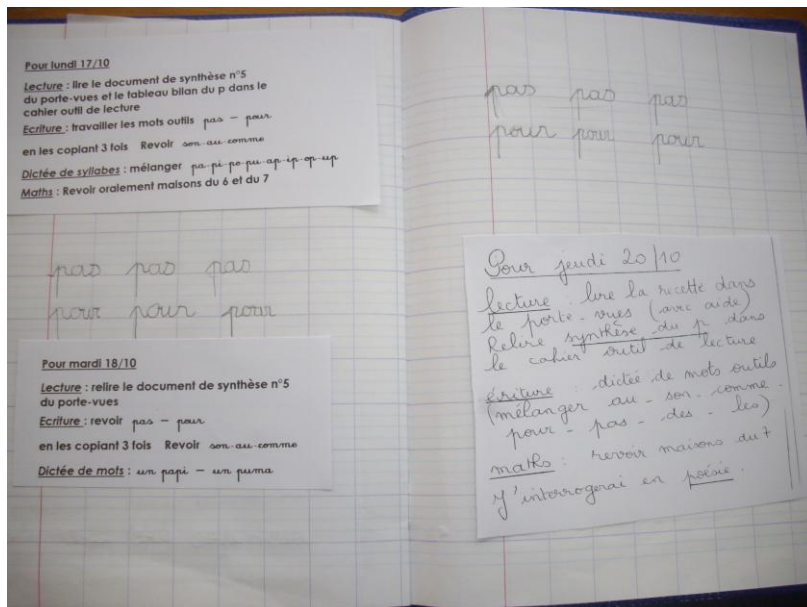 Pour lundi 17/10
Lecture : lire le document de synthèse n°5
du porte-vues et le tableau bilan du p dans le
cahier outil de lecture
Ecriture : travailler les mots outils pas – pour
en les copiant 3 fois Revoir son-au-comme
Dictée de syllabes : mélanger pa-pi-po-pu-ap-ip-op-up
Maths : Revoir oralement maisons du 6 et du 7
pas pas pas
pour pour pour
Pour mardi 18/10
Lecture : relire le document de synthèse n°5
du porte-vues
Ecriture : revoir pas – pour
en les copiant 3 fois Revoir son-au-comme
Dictée de mots : un papi – un puma
pas pas pas
pour pour pour
Pour jeudi 20/10
lecture : lire la recette dans
le porte-vues (avec aide)
Relire synthèse du p dans
le cahier outil de lecture
écriture : dictée de mots outils
(mélanger au - son - comme -
pour - pas - des - les)
maths : revoir maisons du 7
J'interrogerai en poésie.